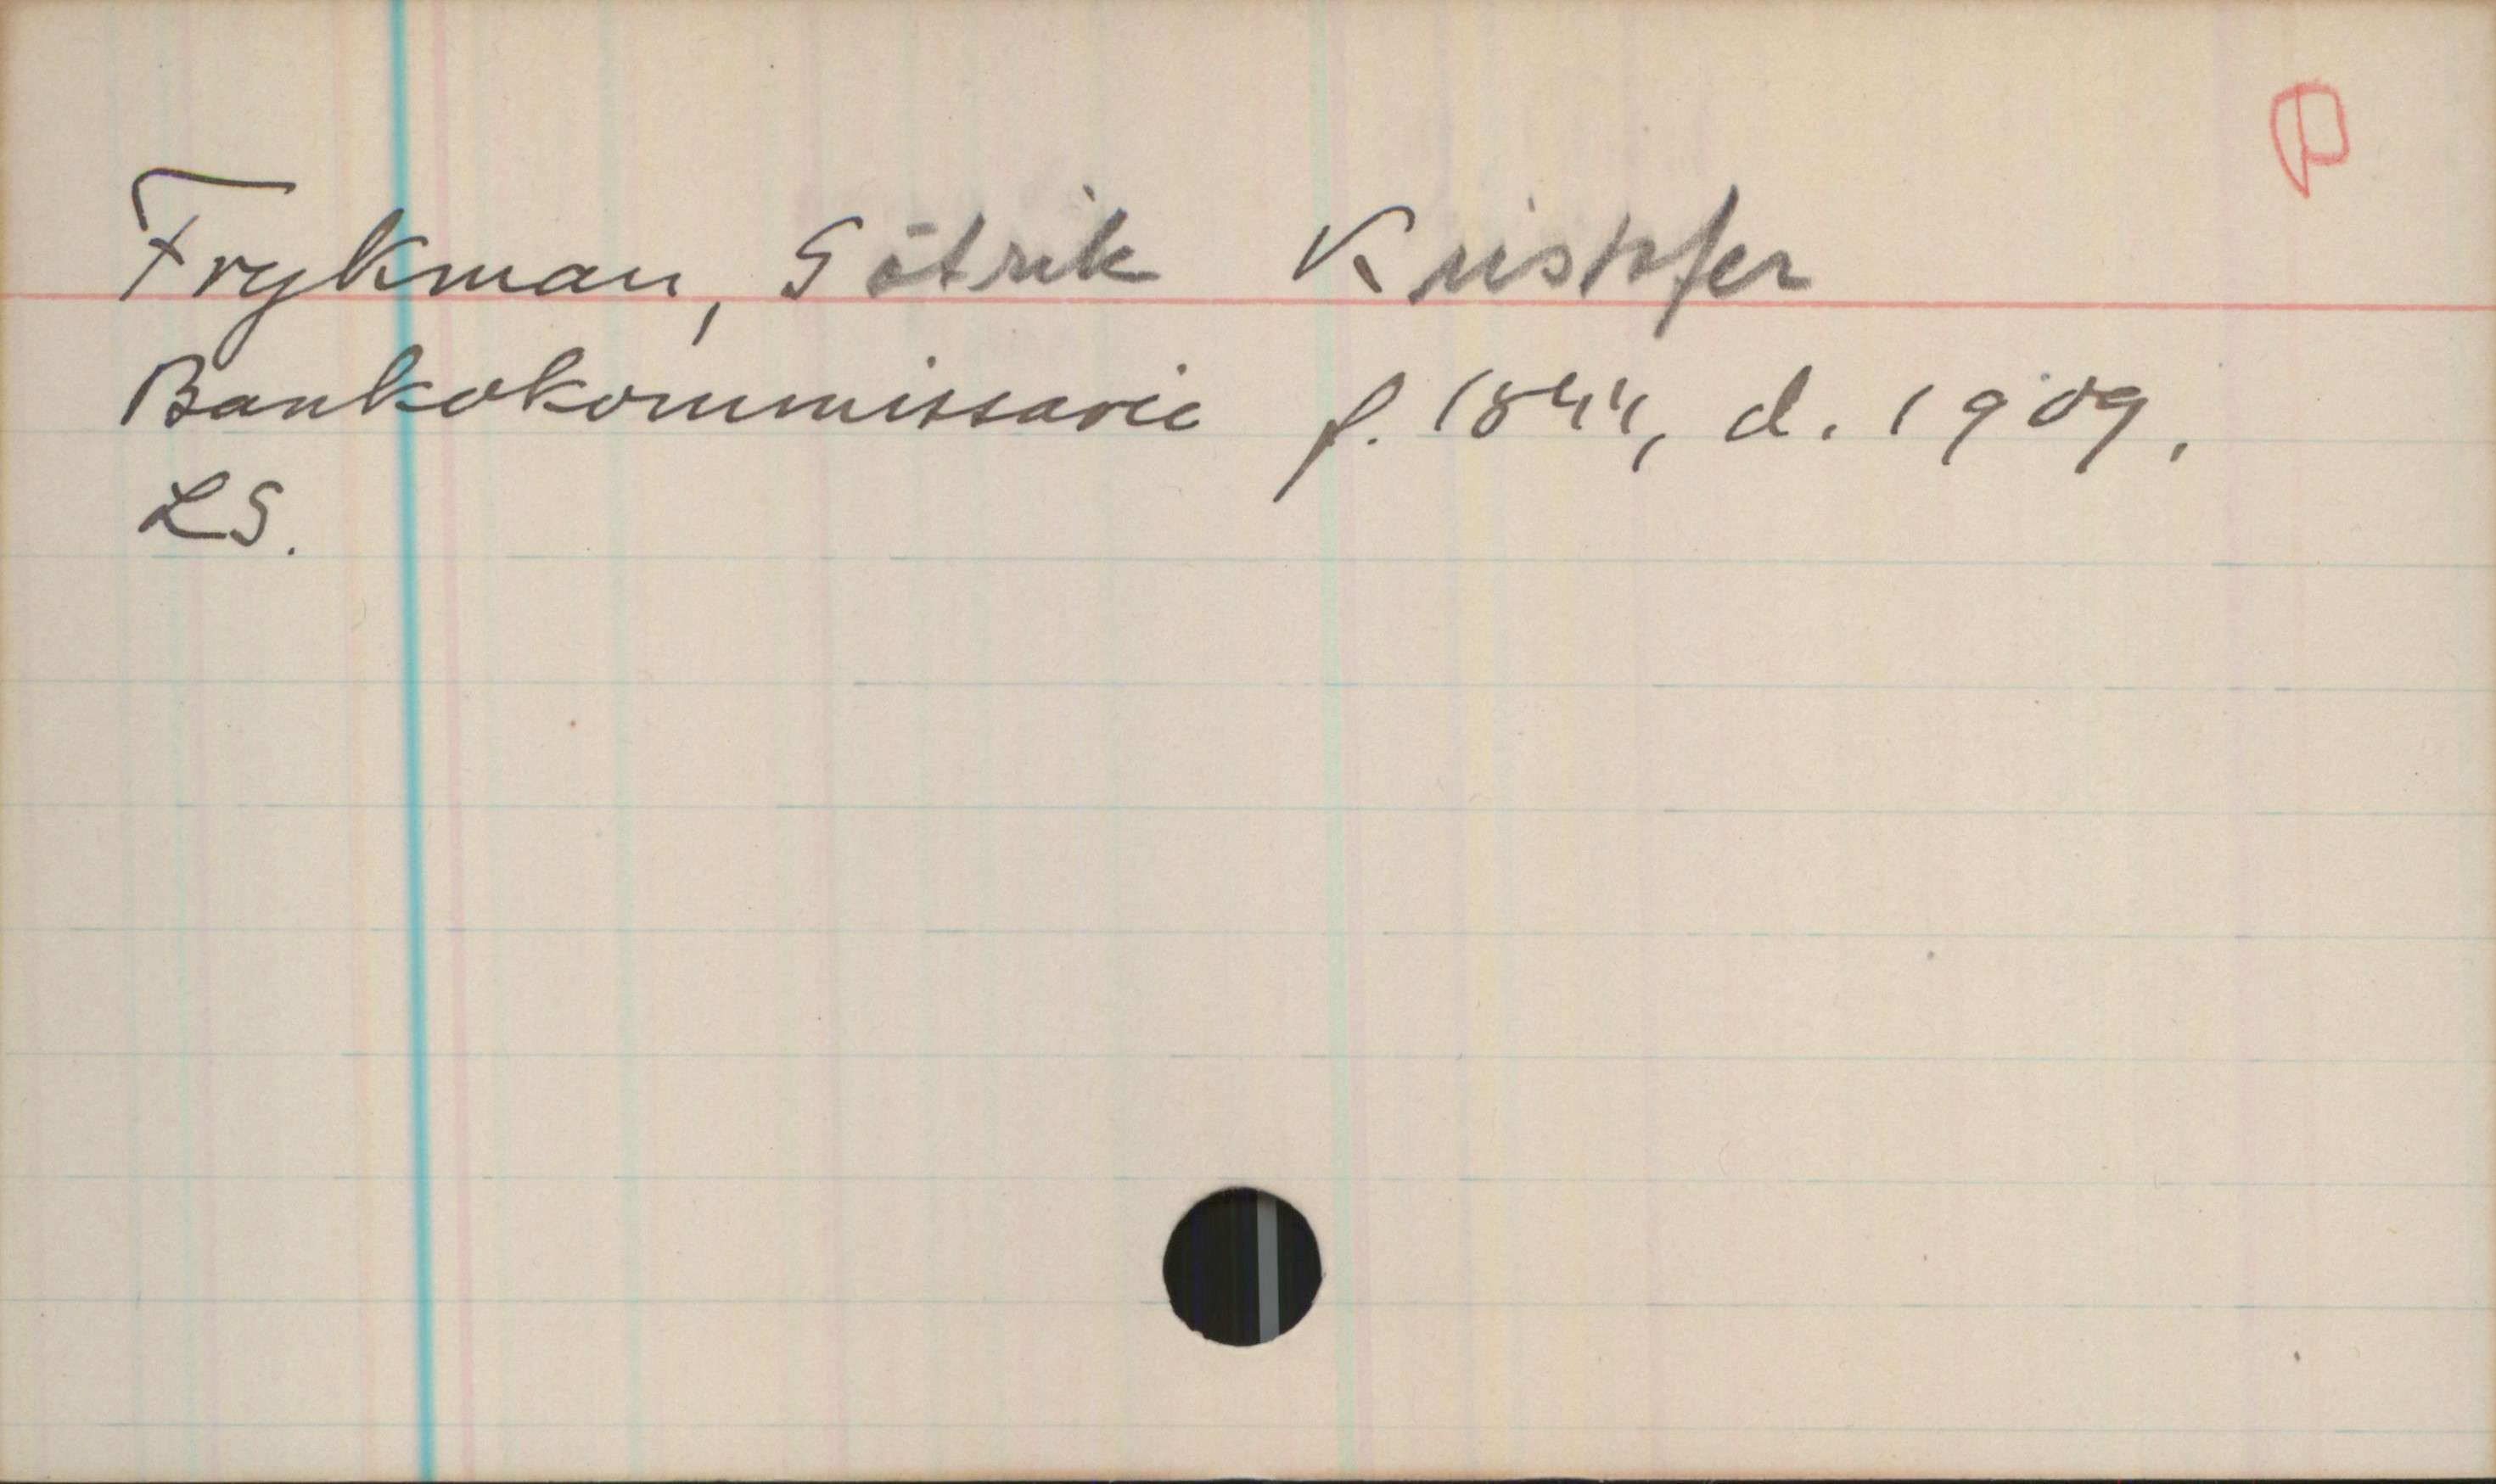 P
Frykman, Götrik Kristofer
Bankokommissarie f. 1844, d. 1909.
LS.